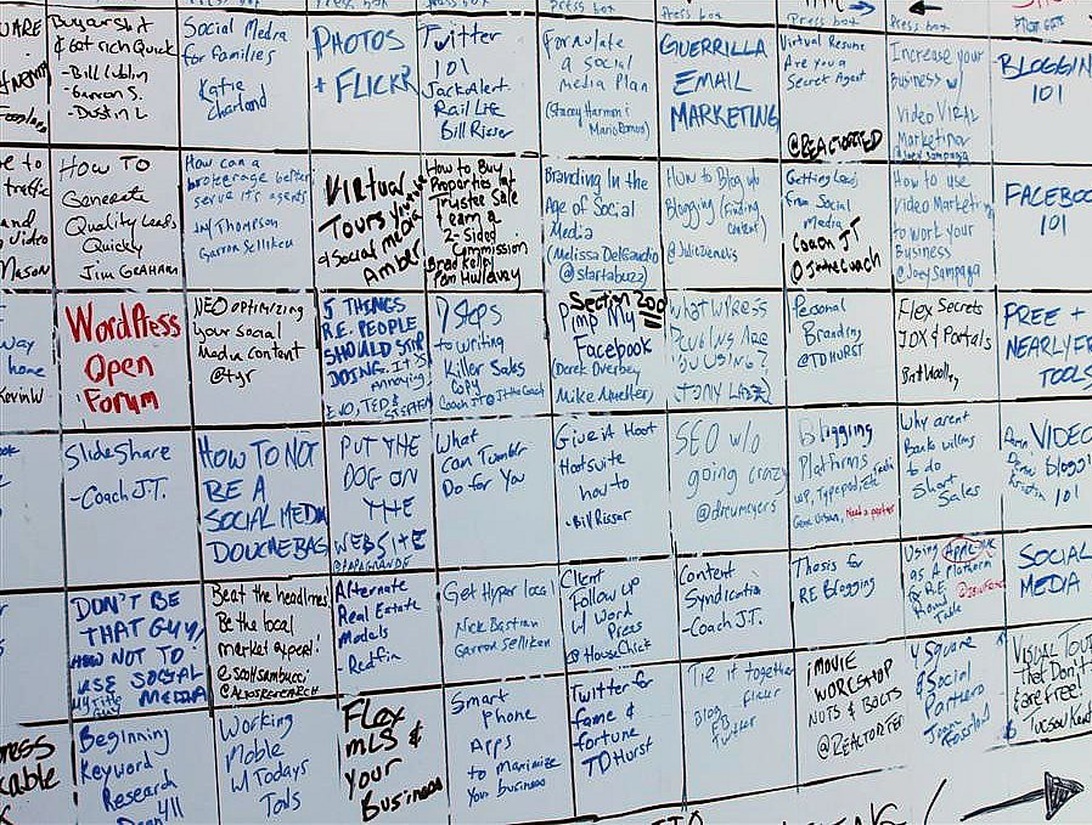 Press box
Press box
Press box
Press box
Press box
Buy an Sh*t
& Got rich Quick
- Bill Lublin
- Garron S.
- Dustin L
Social Media
for families
Katie
Charland
PHOTOS
+ FLICKR
Twitter
101
JackAlert
Rail Life
Bill Risser
Formulate
a Social
Media Plan
(Stacey Harmon &
Mario Romero)
GUERRILLA
EMAIL
MARKETING
Virtual Resume
Are you a
Secret Agent
@REACTORTED
Increase your
Business w/
Video VIRAL
Marketing
@Joeysampaga
BLOGGIN
101
e to
traffic
and
Video
Mason
How TO
Generate
Quality Leads
Quickly
Jim GRAHAM
How can a
brokerage better
serve it's agents
Jay Thompson
Garron Selliken
Virtual
Tours Youtube
& Social media
Amber
How to Buy
Properties at
Trustee Sale
& earn a
2-Sided
Commission
Brad Kelly
Pam Hullaway
Branding In the
Age of Social
Media
(Melissa DelGaudio
@startabuzz)
How to Blog w/o
Blogging (Finding
Content)
Getting Leads
from Social
Media
Coach JT
@JttheCoach
How to use
Video Marketing
to work your
Business
@JoeySampaga
FACEBO
101
way
home
KevinW
WordPress
Open
Forum
NEO optimizing
your social
Media content
@tyr
5 THINGS
R.E. PEOPLE
SHOULD STOP
DOING. IT'S
annoying!
7 Steps
to writing
Killer Sales
Copy
Coach JT @JttheCoach
Section 200
Pimp My
Facebook
(Derek Overbey
Mike Mueller)
What WPRESS
Plugins Are
YOU USING?
Personal
Branding
@TDHURST
Flex Secrets
IDX & Portals
FREE +
NEARLY FR
TOOLS
SlideShare
- Coach J.T.
HOW TO NOT
BE A
SOCIAL MEDIA
DOUCHEBAG
PUT THE
DOG ON
THE
WEBSITE
@PAPAGRANDE
What
can Tumblr
Do for You
Give it Hoot
Hootsuite
how to
- Bill Risser
SEO w/o
going crazy
@drewmeyers
Blogging
Platforms
WP, Typepad, Etc.
Need a partner
Why arent
Banks willing
to do
Short
Sales
VIDEO
Bloggi
101
DON'T BE
THAT GUY!
HOW NOT TO
USE SOCIAL
MEDIA
Beat the headlines!
Be the local
market expert!
@scottsambucci
@ALTOSRESEARCH
Alternate
Real Estate
Models
- Redfin
Get Hyper local
Nick Bastian
Garron Selliken
Client
Follow up
w/ Word
Press
@HouseChick
Content
Syndication
- Coach J.T.
Thesis for
RE Blogging
Using Apple
as A Platform
for R.E.
Round
Table
SOCIAL
MEDIA
RESS
cable
Beginning
Keyword
Research
Dean 411
Working
Mobile
W/ Todays
Tools
Flex
MLS &
your
Business
Smart
phone
Apps
to maximize
Your business
Twitter for
fame &
fortune
TDHurst
Tie it together
Flickr
Blog
FB
Twitter
iMOVIE
WORKSHOP
NUTS & BOLTS
@REACTORTED
4 Square
& Social
Partners
Visual Tours
that Don't
& are free!